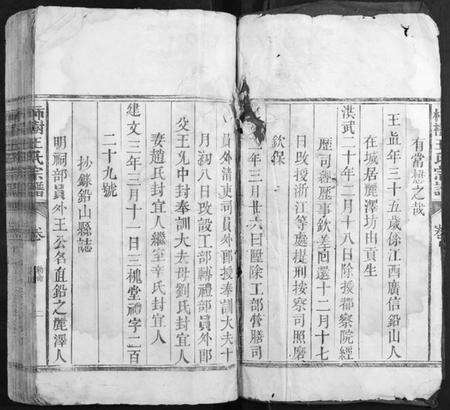 有當極之哉
王直年三十五歲係江西廣信鉛山人
在城居麗澤坊由貢生
洪武二十年二月十八日除授都察院經
歷司經歷事欽差回還十二月十七
日改授浙江等處提刑按察司照磨
欽保
年三月廿六日欽除工部營膳司
員外清吏司員外郎授奉訓大夫十
月初八日改設工部轉禮部員外郎
父王允中封奉訓大夫母劉氏封宜人
妻趙氏封宜人繼室辛氏封宜人
建文三年三月十一日三槐堂禮字二百
二十九號
抄錄鉛山縣誌
明祠部員外王公名直鉛之麗澤人
王氏宗譜
卷